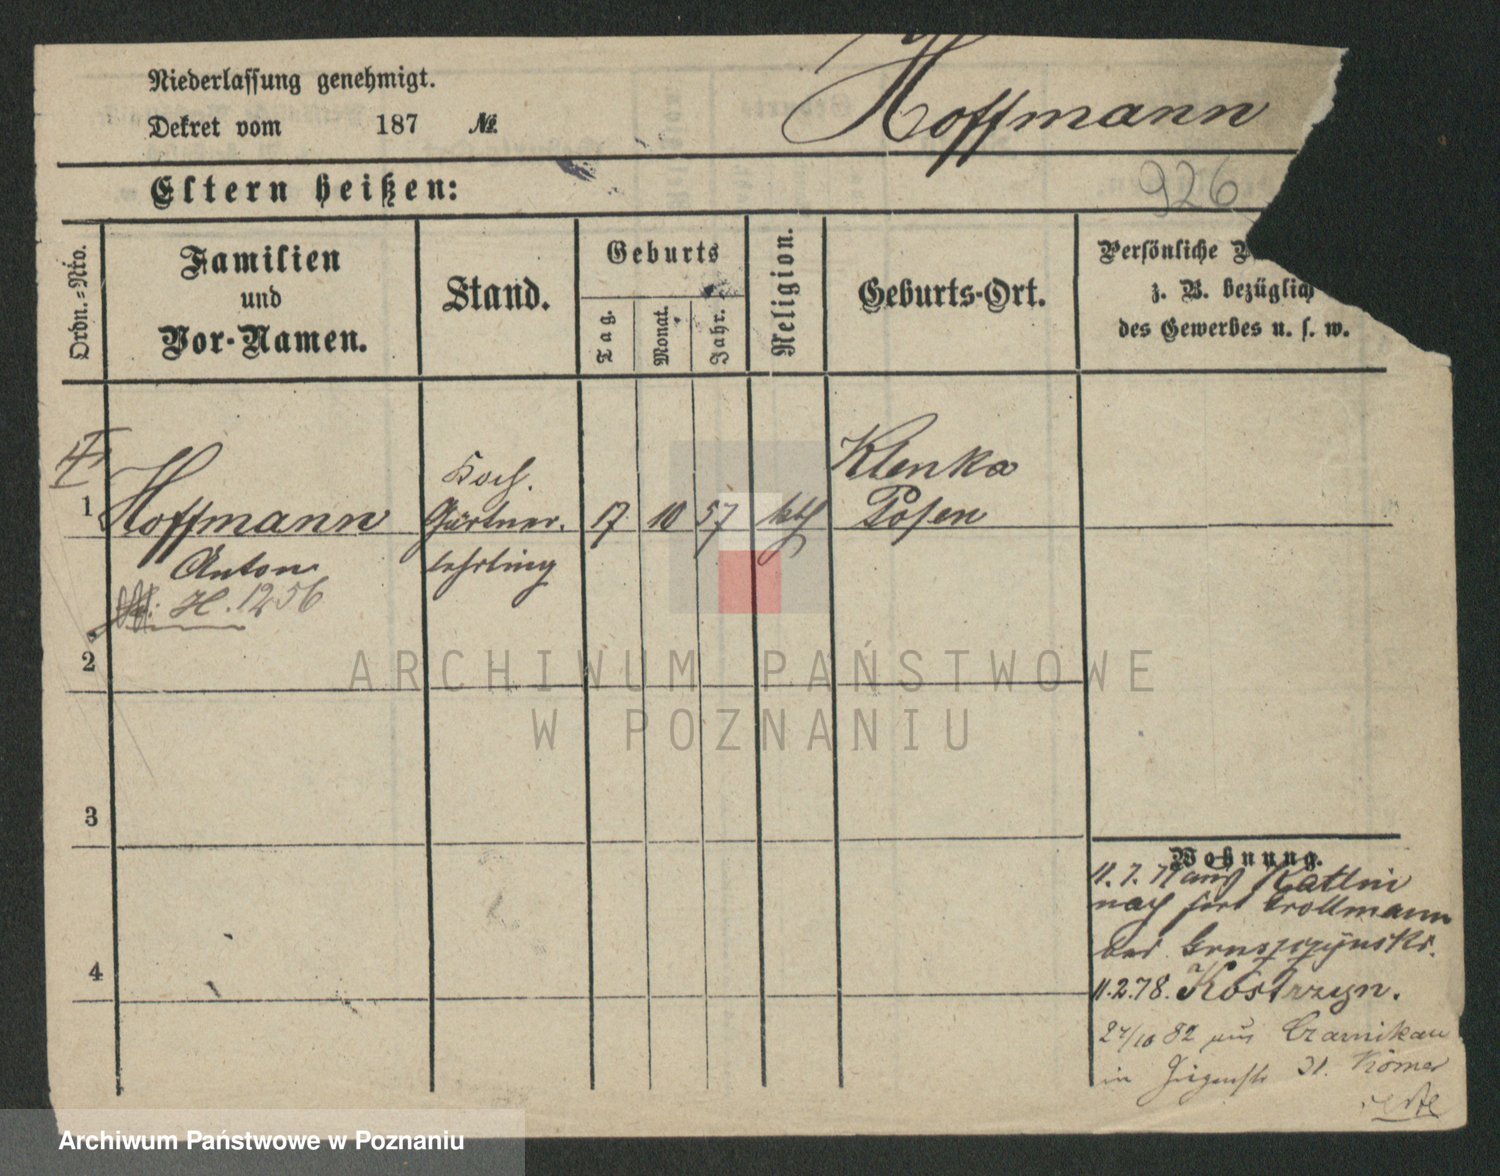 Niederlassung genehmigt.
Dekret vom 187 №
Hoffmann
926
Eltern heißen:
Ordn.=Nro.
Familien
und
Vor-Namen.
Stand.
Geburts
Tag.
Monat.
Jahr.
Religion.
Geburts-Ort.
Persönliche
z. B. bezüglich
des Gewerbes u. s. w.
1
Hoffmann
Anton
H. 1256
Koch.
Gärtner.
lehrling
17 10 57 kth
Klenka
Posen
2
3
4
Wohnung.
11.7.77 aus
nach Fort Grollmann
bei
11.2.78. Kostrzyn.
24/10 82 aus Czarnikau
in 31. Römer
ARCHIWUM PAŃSTWOWE
W POZNANIU
Archiwum Państwowe w Poznaniu